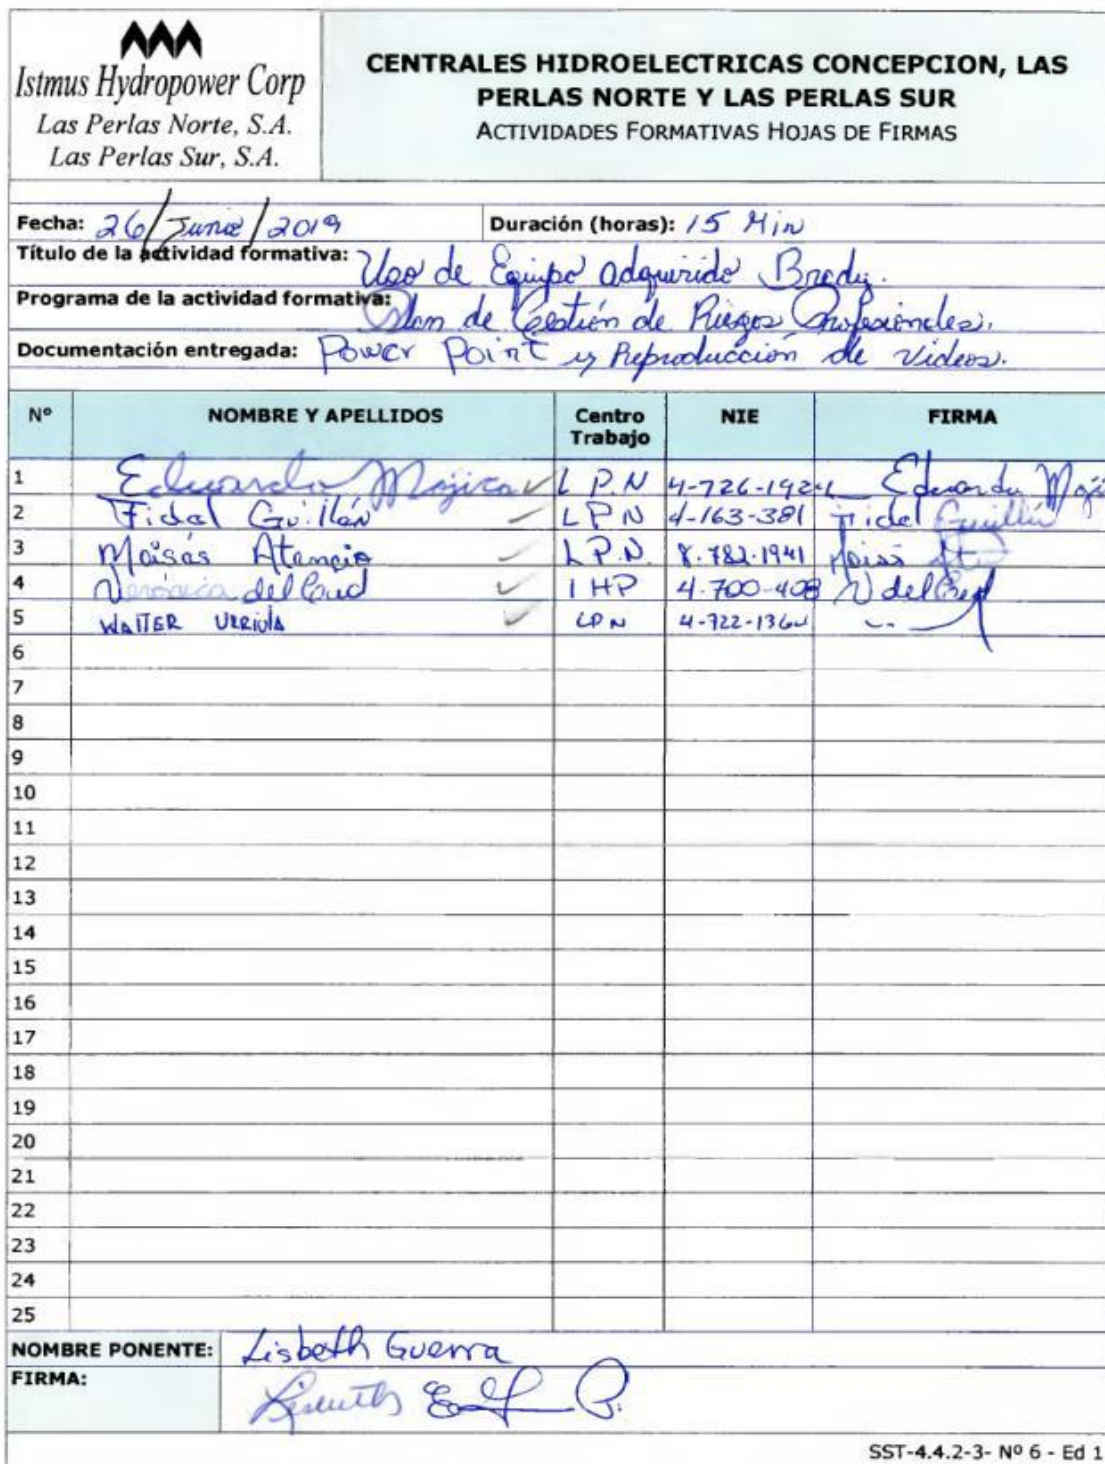 Istmus Hydropower Corp
Las Perlas Norte, S.A.
Las Perlas Sur, S.A.
CENTRALES HIDROELECTRICAS CONCEPCION, LAS
PERLAS NORTE Y LAS PERLAS SUR
ACTIVIDADES FORMATIVAS HOJAS DE FIRMAS
Fecha: 26/Junio/2019 Duración (horas): 15 Min
Título de la actividad formativa: Uso de Equipo adquirido Brady.
Programa de la actividad formativa: Plan de Gestión de Riesgos Profesionales.
Documentación entregada: Power Point y Reproducción de videos.
Nº NOMBRE Y APELLIDOS Centro Trabajo NIE FIRMA
1 Eduardo Mojica L P.N 4-726-192 Eduardo
2 Fidel Guillén LPN 4-163-381 Fidel Guillén
3 Moisés Atencio L.P.N. 8-782-1941 Moises
4 Verónica del Cid IHP 4-700-408 V del Cid
5 WALTER URRIOLA LPN 4-722-136
6
7
8
9
10
11
12
13
14
15
16
17
18
19
20
21
22
23
24
25
NOMBRE PONENTE: Lisbeth Guerra
FIRMA: Lisbeth
SST-4.4.2-3- Nº 6 - Ed 1